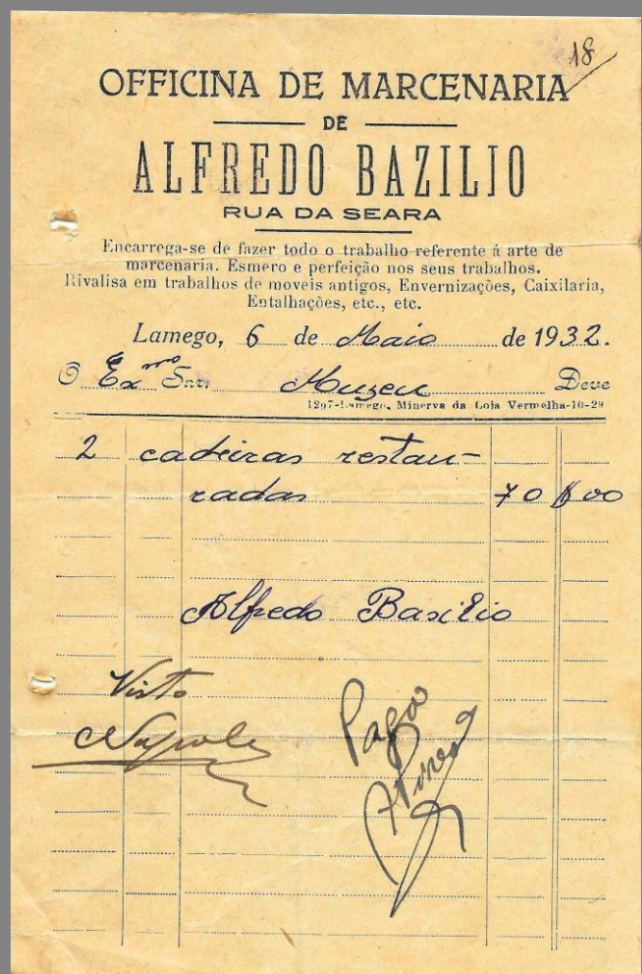 18
OFFICINA DE MARCENARIA
DE
ALFREDO BAZILIO
RUA DA SEARA
Encarrega-se de fazer todo o trabalho referente á arte de
marcenaria. Esmero e perfeição nos seus trabalhos.
Rivalisa em trabalhos de moveis antigos, Envernizações, Caixilaria,
Entalhações, etc., etc.
Lamego, 6 de Maio de 1932.
O Ex.mo Snr. Muzeu Deve
1297-Lamego, Minerva da Loja Vermelha-10-29
2 cadeiras restau-
radas 70$00
Alfredo Basilio
Visto
Pagou